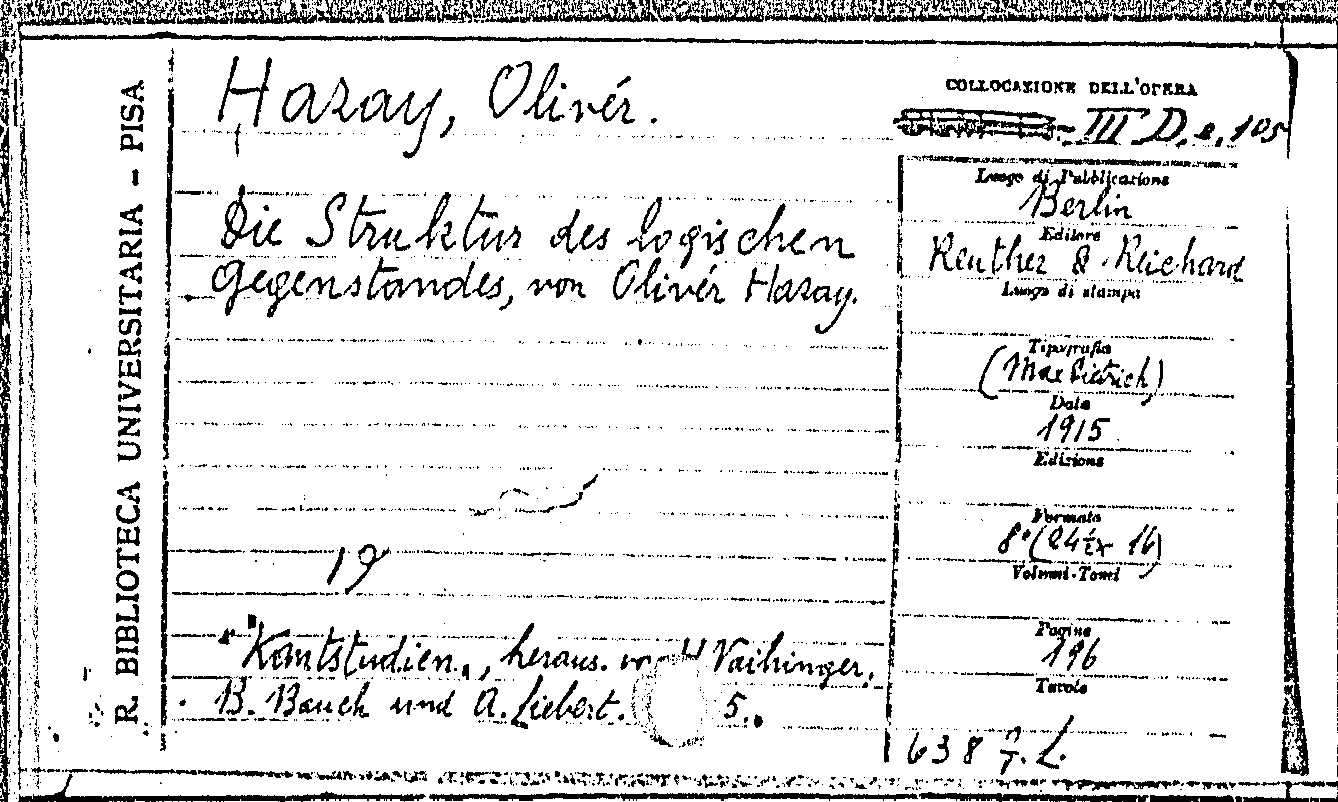 R. BIBLIOTECA UNIVERSITARIA - PISA
Hazay, Olivér.
Die Struktur des logischen
Gegenstandes, von Olivér Hazay.
19
"Kantstudien", heraus. von H Vaihinger,
B. Bauch und A. Liebert. 5.
COLLOCAZIONE DELL'OPERA
III D. e. 105
Luogo di Pubblicazione
Berlin
Editore
Reuther & Reichard
Luogo di stampa
Tipografia
(Max Dietrich)
Data
1915
Edizione
Formato
8° (24½ x 16)
Volumi-Tomi
Pagine
196
Tavole
638